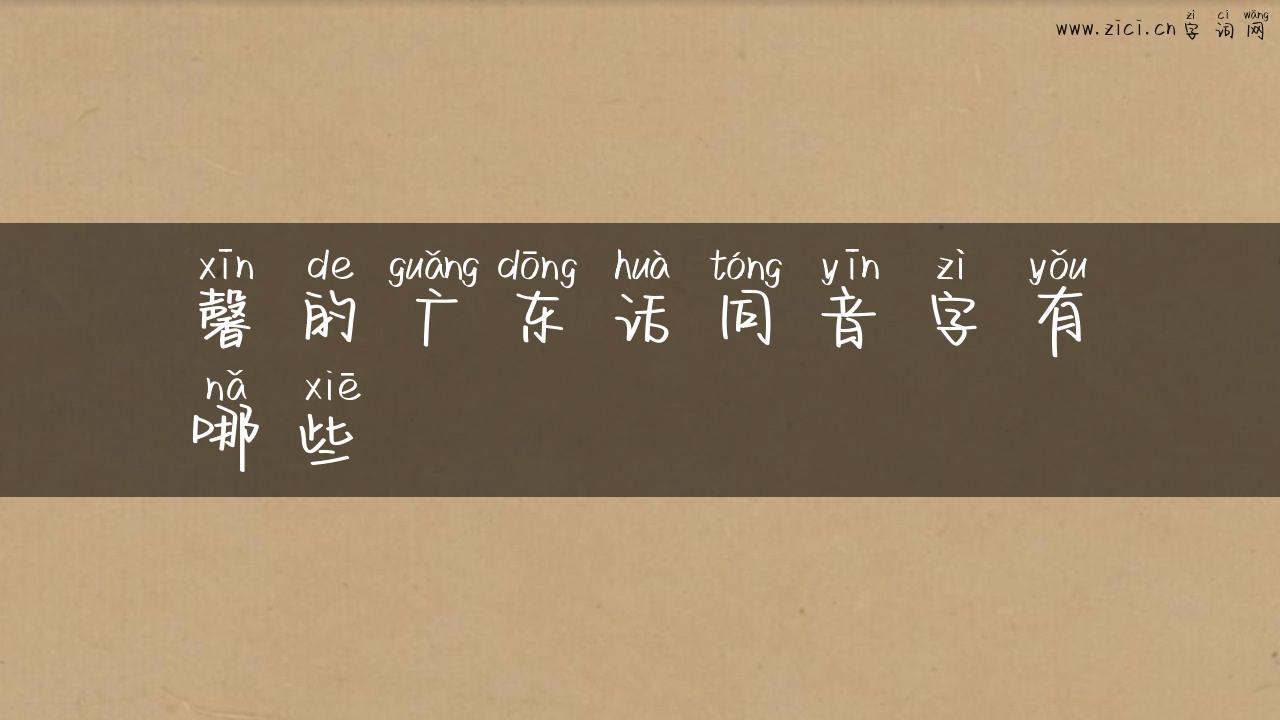 zì cí wǎng
www.zici.cn 字词网
xīn de guǎng dōng huà tóng yīn zì yǒu
馨的广东话同音字有
nǎ xiē
哪些